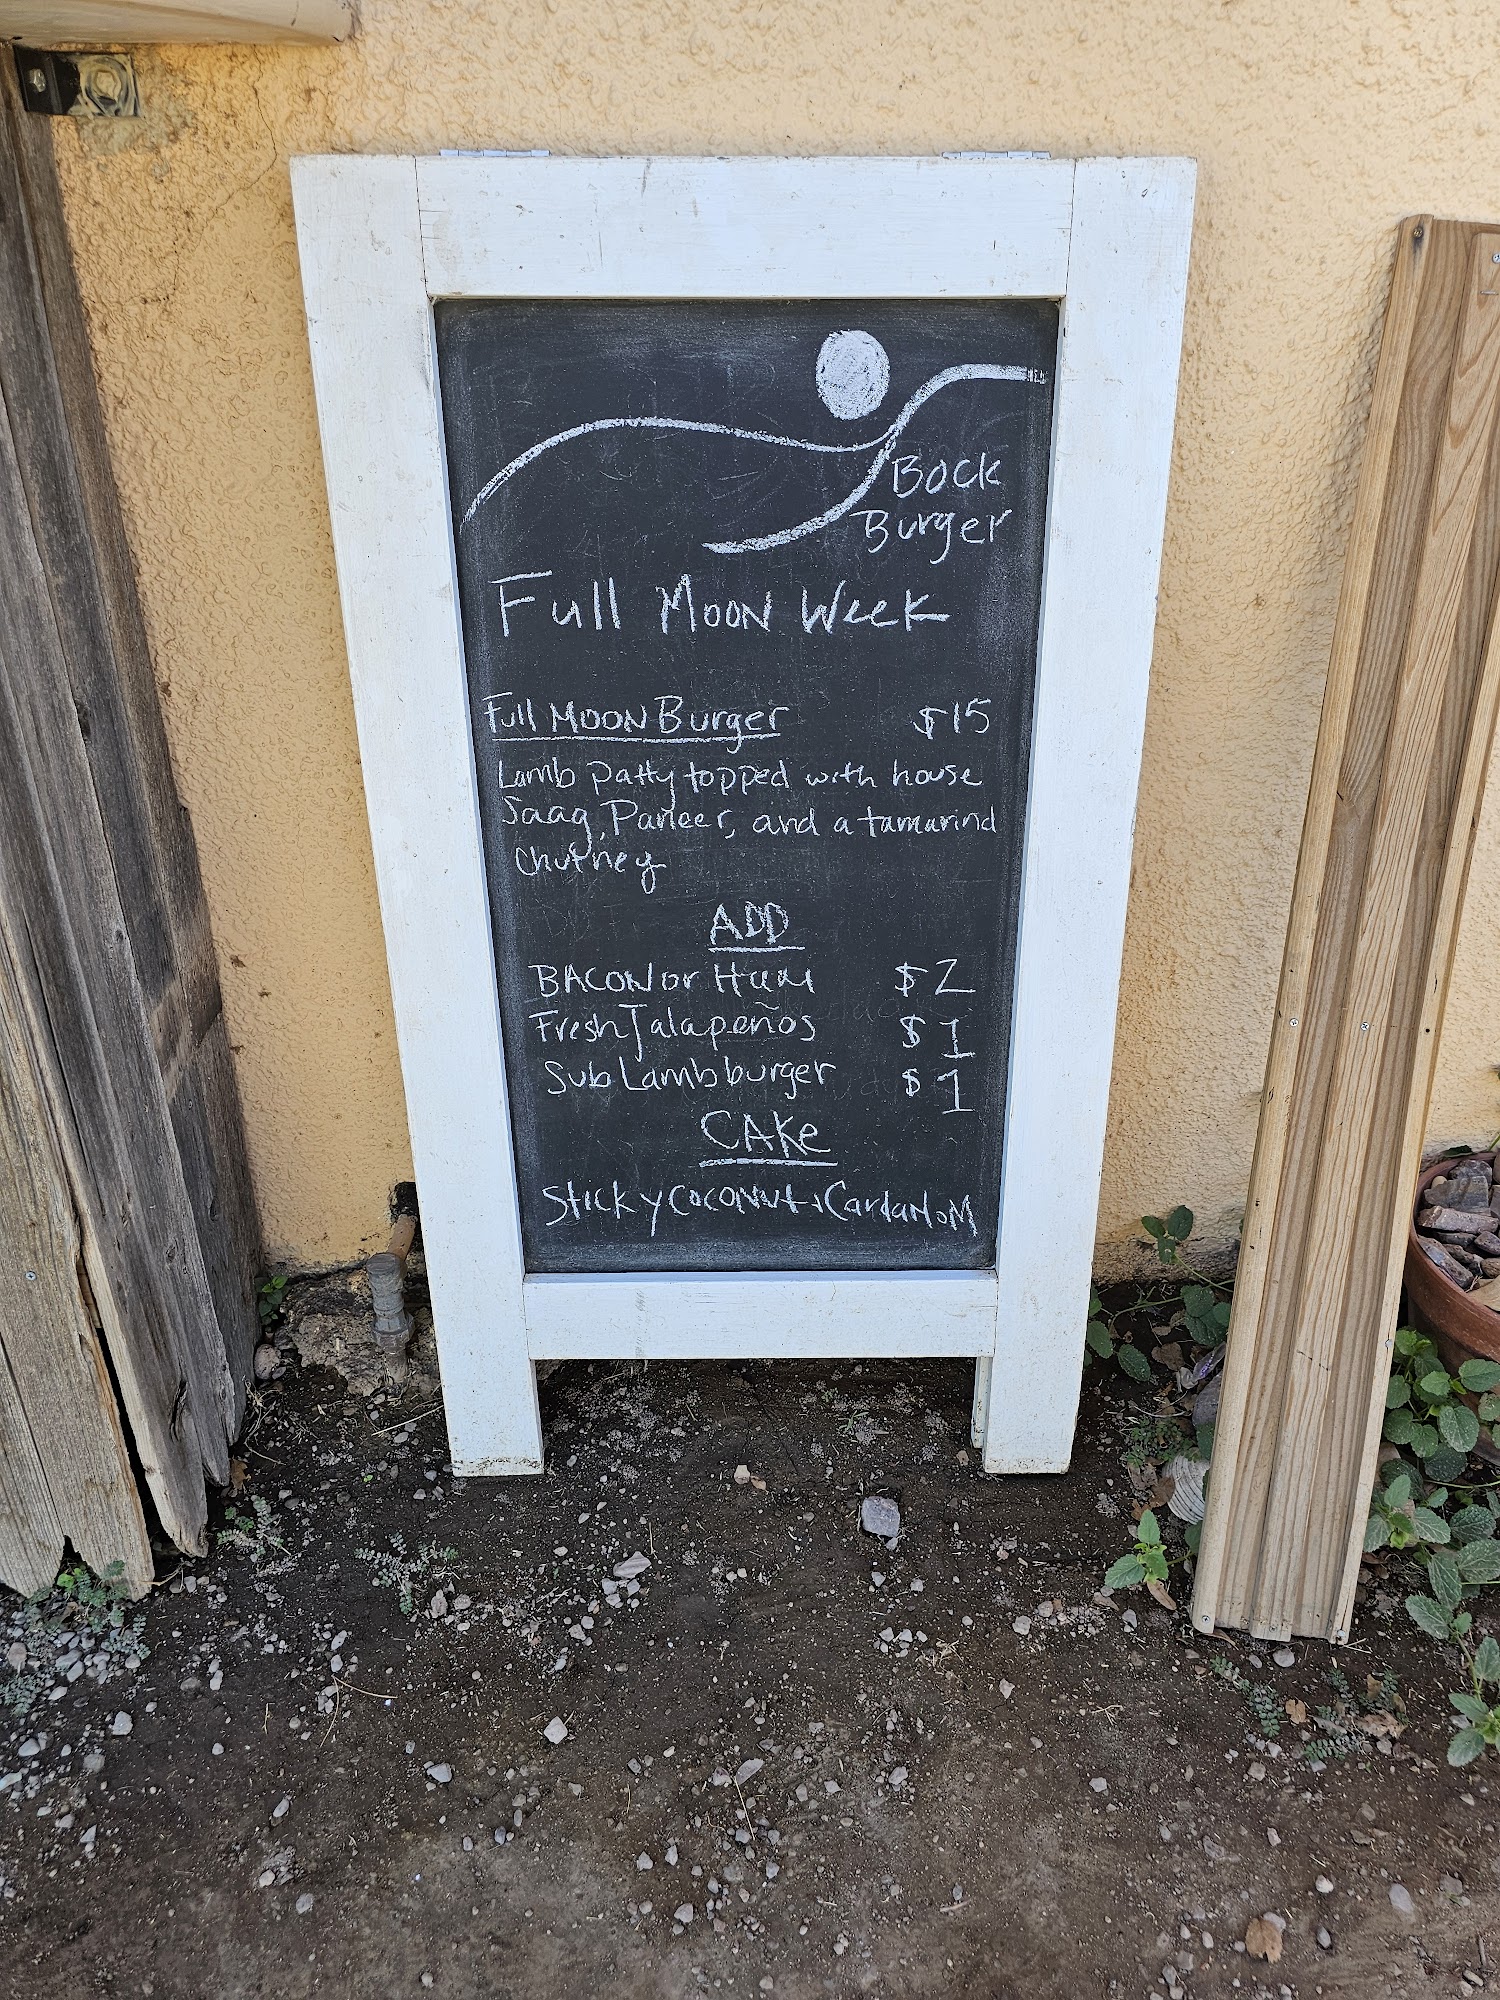 Bock
Burger
Full Moon Week
Full Moon Burger $15
Lamb patty topped with house
Saag, Paneer, and a tamarind
Chutney
ADD
BACON or Ham $2
Fresh Jalapeños $1
Sub Lamb burger $1
CAKE
Sticky Coconut + Cardamom